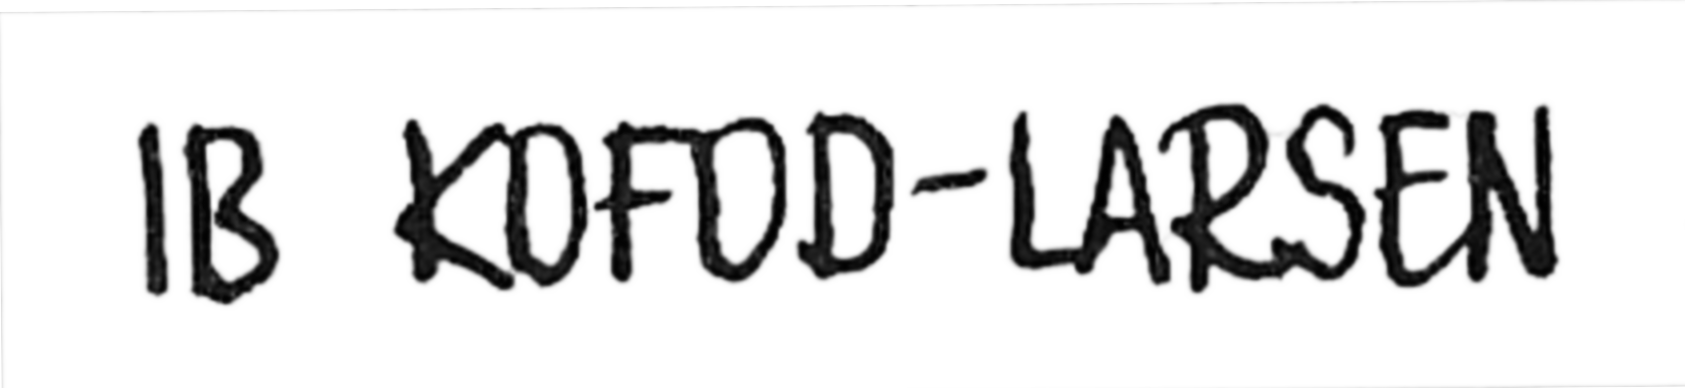 IB KOFOD-LARSEN